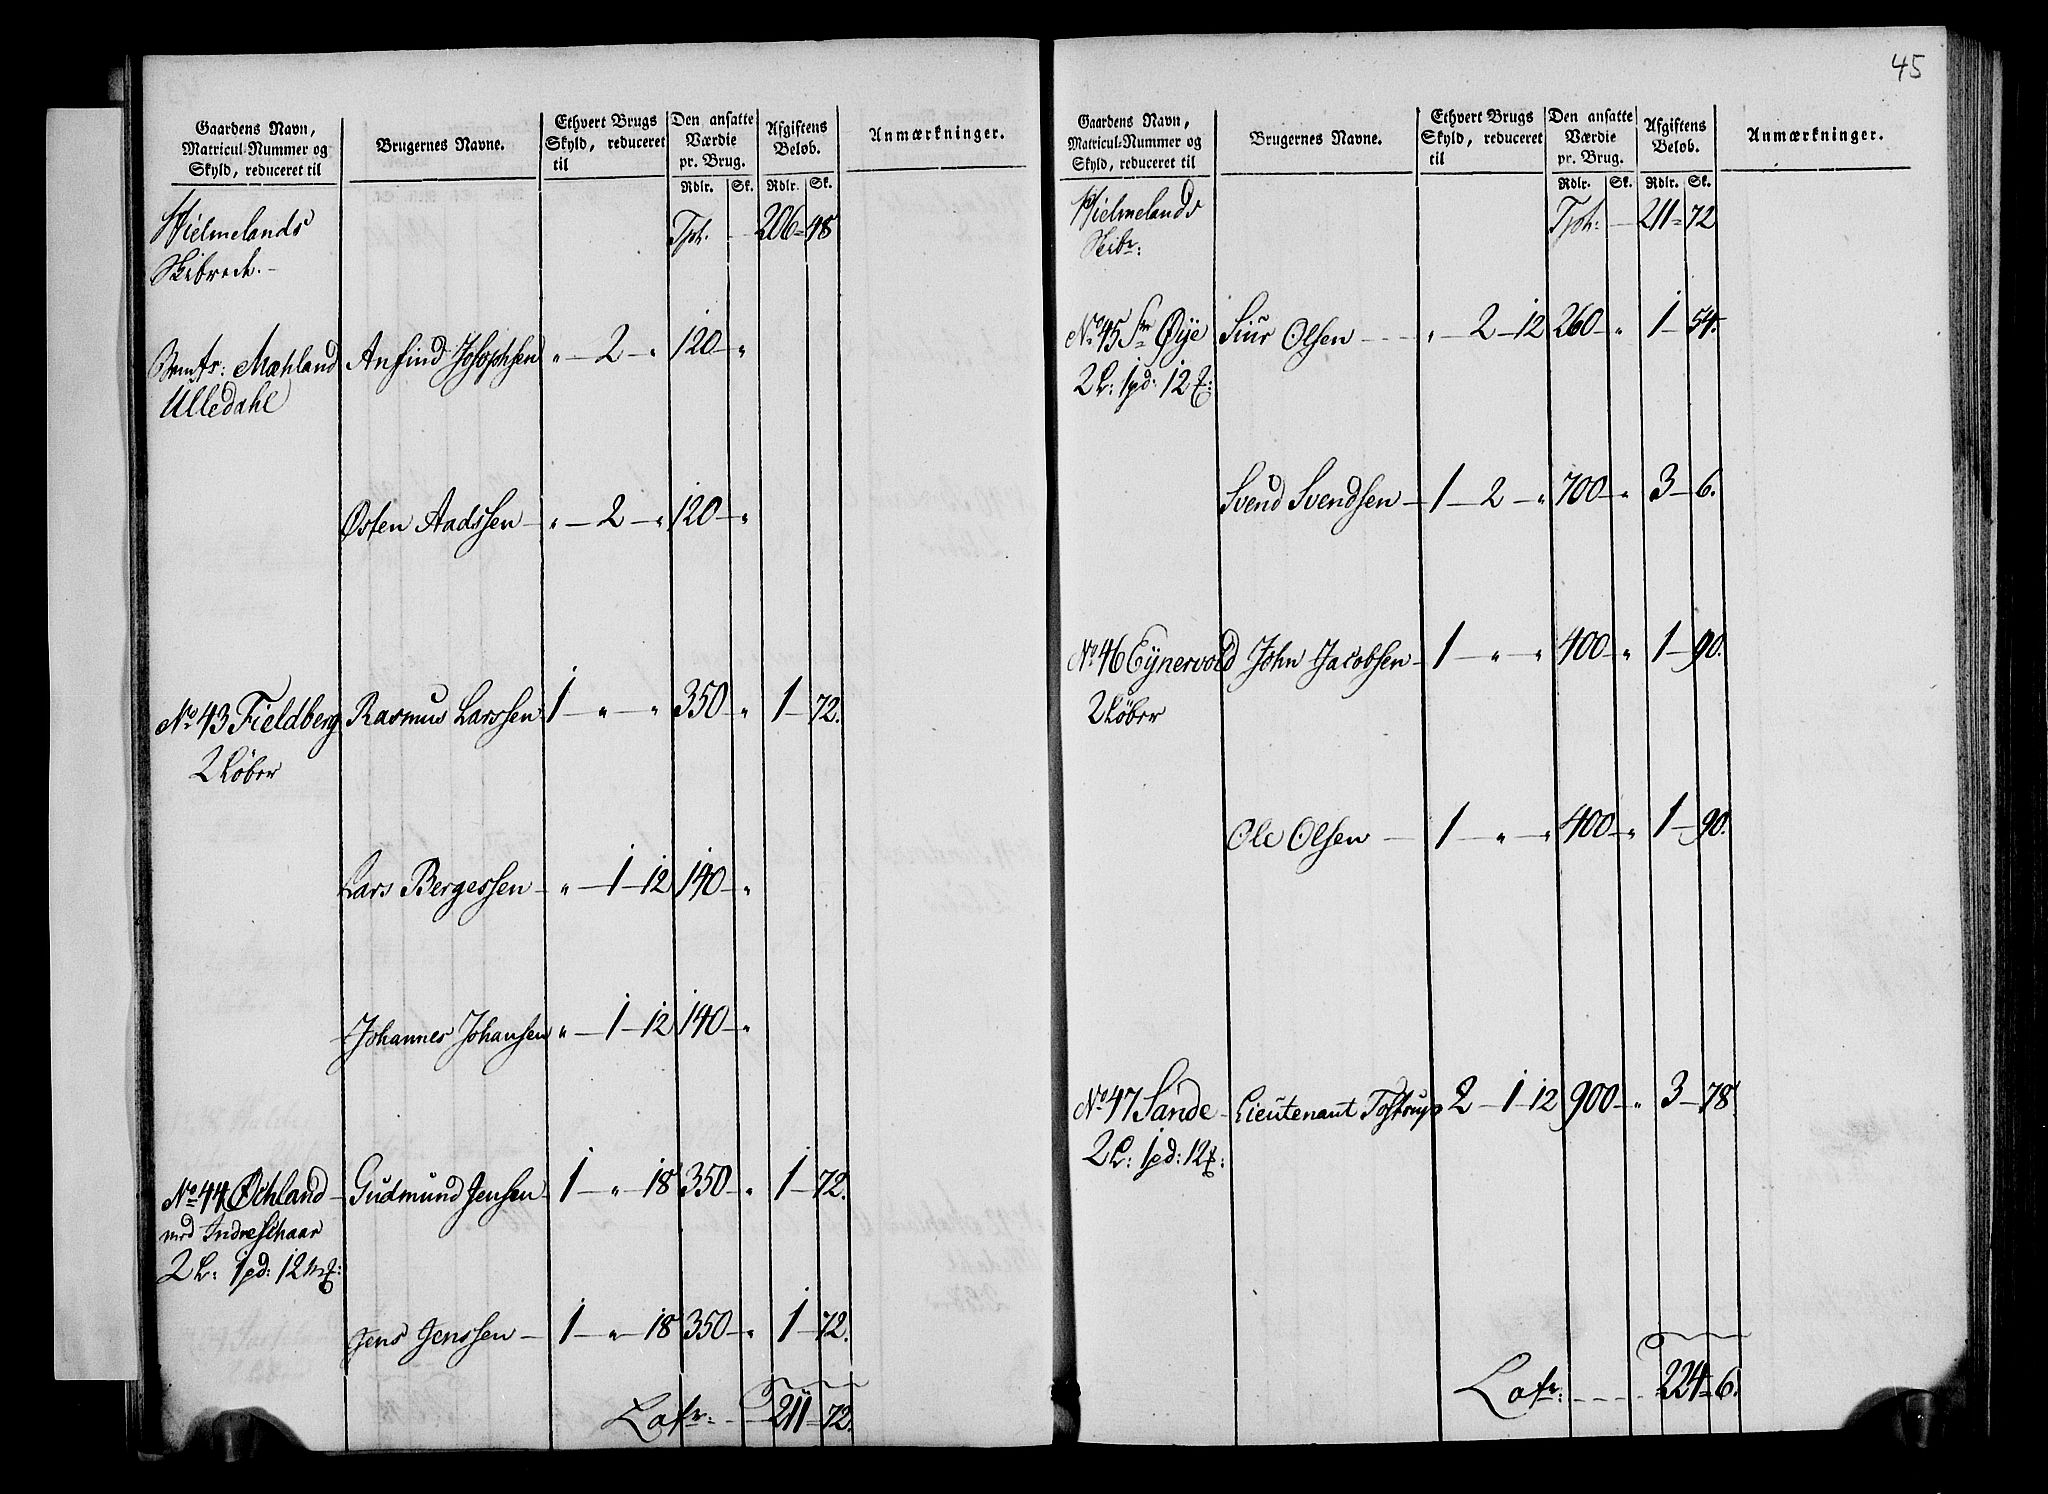 Gaardens Navn, Matricul-Nummer og Skyld, reduceret til | Brugernes Navne. | Ethvert Brugs Skyld, reduceret til | Den ansatte Værdie pr. Brug. Rdlr. Sk. | Afgiftens Beløb. Rdlr. Sk. | Anmærkninger.
Hielmelands Tpt. 206 = 48
Skibrede.
Mæhland Anfind Josephsen „ 2 „ 120 „
Ulledahl
Østen Aadssen „ 2 „ 120 „
No. 43 Fieldberg Rasmus Larssen 1 „ „ 350 „ 1 72.
2 Løber
Lars Bergessen „ 1 12 140 „
Johannes Johansen „ 1 12 140 „
No. 44 Øchland Gudmund Jensen 1 „ 18 350 „ 1 72.
med Indreschaar
2 L: 1 pd: 12 mk:
Jens Jenssen 1 „ 18 350 „ 1 72.
Latr: 211 72.
45
Gaardens Navn, Matricul-Nummer og Skyld, reduceret til | Brugernes Navne. | Ethvert Brugs Skyld, reduceret til | Den ansatte Værdie pr. Brug. Rdlr. Sk. | Afgiftens Beløb. Rdlr. Sk. | Anmærkninger.
Hielmelands Tpt: 211 = 72
Skibr:
No. 45 Øÿe Siur Olsen „ 2 12 260 „ 1 54.
2 L: 1 pd: 12
Svend Svendsen 1 2 „ 700 „ 3 6.
No. 46 Eÿnervold John Jacobsen 1 „ „ 400 „ 1 90.
2 Løber
Ole Olsen 1 „ „ 400 „ 1 90.
No. 47 Sande Lieutenant Tostrup 2 1 12 900 „ 3 78
2 L: 1 pd: 12
Latr: 224 = 6.